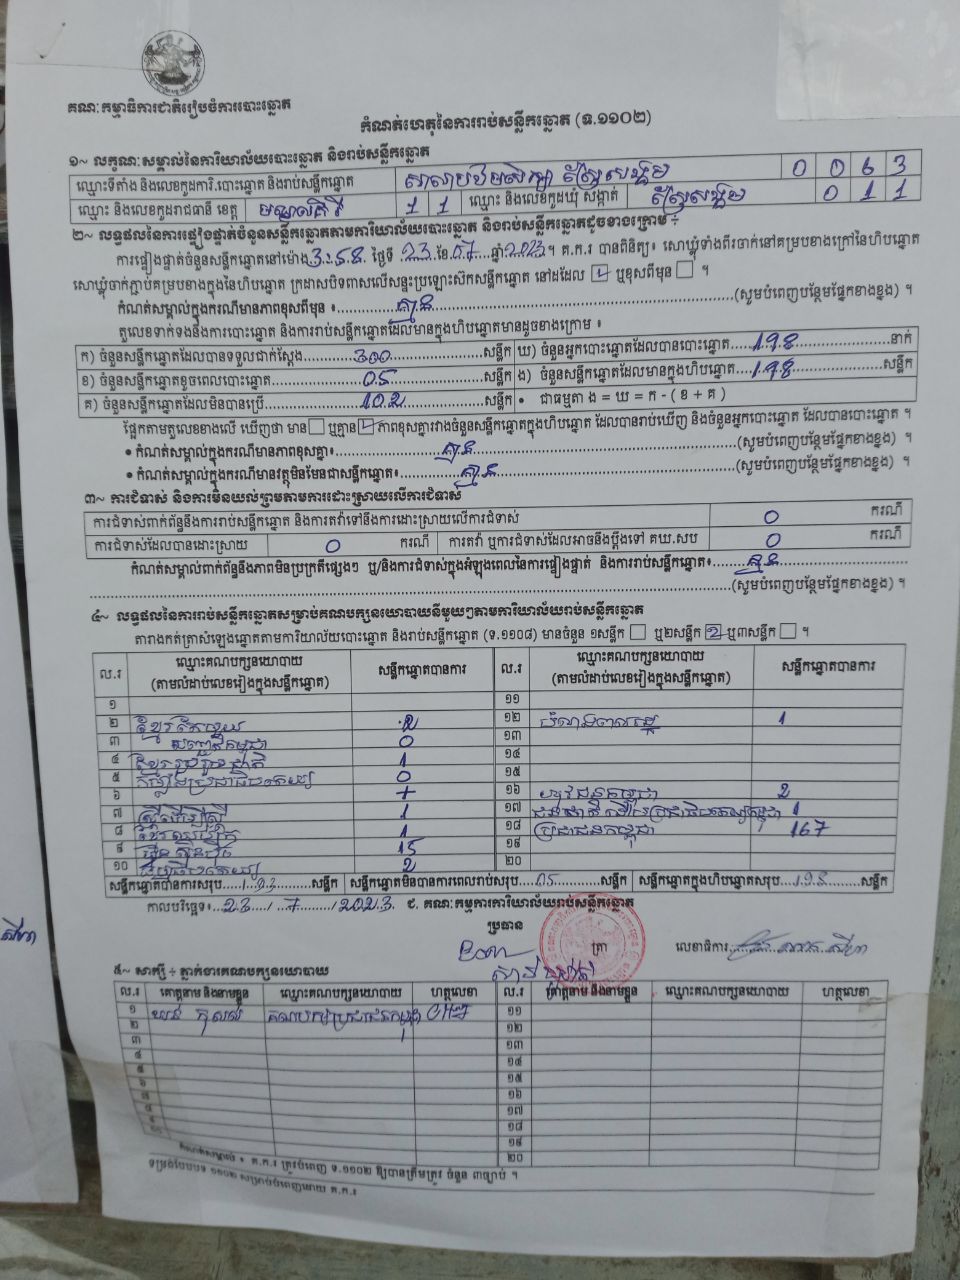 គណៈកម្មាធិការជាតិរៀបចំការបោះឆ្នោត
កំណត់ហេតុនៃការរាប់សន្លឹកឆ្នោត (ទ.១១០២)
១~ លក្ខណៈសម្គាល់នៃការិយាល័យបោះឆ្នោត និងរាប់សន្លឹកឆ្នោត
ឈ្មោះទីតាំង និងលេខកូដការិ.បោះឆ្នោត និងរាប់សន្លឹកឆ្នោត សាលាបឋមសិក្សា ស្រែសង្គម 0 0 6 3
ឈ្មោះ និងលេខកូដរាជធានី ខេត្ត មណ្ឌលគិរី 1 1 ឈ្មោះ និងលេខកូដឃុំ សង្កាត់ ស្រែសង្គម 0 1 1
២~ លទ្ធផលនៃការផ្ទៀងផ្ទាត់ចំនួនសន្លឹកឆ្នោតតាមការិយាល័យបោះឆ្នោត និងរាប់សន្លឹកឆ្នោតដូចខាងក្រោម ÷
ការផ្ទៀងផ្ទាត់ចំនួនសន្លឹកឆ្នោតនៅម៉ោង 3:58 ថ្ងៃទី 23 ខែ 07 ឆ្នាំ 2023។ គ.ក.រ បានពិនិត្យ៖ សោឃ្លុំទាំងពីរចាក់នៅគម្របខាងក្រៅនៃហិបឆ្នោត
សោឃ្លុំចាក់ភ្ជាប់គម្របខាងក្នុងនៃហិបឆ្នោត ក្រដាសបិទពាសលើសន្ទះប្រឡោះស៊កសន្លឹកឆ្នោត នៅដដែល ☑ ឬខុសពីមុន ☐ ។
កំណត់សម្គាល់ក្នុងករណីមានភាពខុសពីមុន ៖ គ្មាន (សូមបំពេញបន្ថែមផ្នែកខាងខ្នង) ។
តួលេខទាក់ទងនឹងការបោះឆ្នោត និងការរាប់សន្លឹកឆ្នោតដែលមានក្នុងហិបឆ្នោតមានដូចខាងក្រោម ៖
ក) ចំនួនសន្លឹកឆ្នោតដែលបានទទួលជាក់ស្តែង 300 សន្លឹក ឃ) ចំនួនអ្នកបោះឆ្នោតដែលបានបោះឆ្នោត 198 នាក់
ខ) ចំនួនសន្លឹកឆ្នោតខូចពេលបោះឆ្នោត 05 សន្លឹក ង) ចំនួនសន្លឹកឆ្នោតដែលមានក្នុងហិបឆ្នោត 198 សន្លឹក
គ) ចំនួនសន្លឹកឆ្នោតដែលមិនបានប្រើ 102 សន្លឹក • ជាធម្មតា ង = ឃ = ក - ( ខ + គ )
ផ្អែកតាមតួលេខខាងលើ ឃើញថា មាន ☐ ឬគ្មាន ☑ ភាពខុសគ្នារវាងចំនួនសន្លឹកឆ្នោតក្នុងហិបឆ្នោត ដែលបានរាប់ឃើញ និងចំនួនអ្នកបោះឆ្នោត ដែលបានបោះឆ្នោត ។
• កំណត់សម្គាល់ក្នុងករណីមានភាពខុសគ្នា៖ គ្មាន (សូមបំពេញបន្ថែមផ្នែកខាងខ្នង) ។
• កំណត់សម្គាល់ក្នុងករណីមានវត្ថុមិនមែនជាសន្លឹកឆ្នោត៖ គ្មាន (សូមបំពេញបន្ថែមផ្នែកខាងខ្នង) ។
៣~ ការជំទាស់ និងការមិនយល់ព្រមតាមការដោះស្រាយលើការជំទាស់
ការជំទាស់ពាក់ព័ន្ធនឹងការរាប់សន្លឹកឆ្នោត និងការតវ៉ាទៅនឹងការដោះស្រាយលើការជំទាស់ 0 ករណី
ការជំទាស់ដែលបានដោះស្រាយ 0 ករណី ការតវ៉ា ឬការជំទាស់ដែលអាចនឹងប្តឹងទៅ គឃ.សប 0 ករណី
កំណត់សម្គាល់ពាក់ព័ន្ធនឹងភាពមិនប្រក្រតីផ្សេងៗ ឬ/និងការជំទាស់ក្នុងអំឡុងពេលនៃការផ្ទៀងផ្ទាត់ និងការរាប់សន្លឹកឆ្នោត៖ គ្មាន
(សូមបំពេញបន្ថែមផ្នែកខាងខ្នង) ។
៤~ លទ្ធផលនៃការរាប់សន្លឹកឆ្នោតសម្រាប់គណបក្សនយោបាយនីមួយៗតាមការិយាល័យរាប់សន្លឹកឆ្នោត
តារាងកត់ត្រាសំឡេងឆ្នោតតាមការិយាល័យបោះឆ្នោត និងរាប់សន្លឹកឆ្នោត (ទ.១១០៨) មានចំនួន ១សន្លឹក ☐ ឬ២សន្លឹក 2 ឬ៣សន្លឹក ☐ ។
ល.រ ឈ្មោះគណបក្សនយោបាយ (តាមលំដាប់លេខរៀងក្នុងសន្លឹកឆ្នោត) សន្លឹកឆ្នោតបានការ ល.រ ឈ្មោះគណបក្សនយោបាយ (តាមលំដាប់លេខរៀងក្នុងសន្លឹកឆ្នោត) សន្លឹកឆ្នោតបានការ
១ ១១
២ ខ្មែរ 2 ១២ 1
៣ កម្ពុជា 0 ១៣
៤ ខ្មែររួបរួមជាតិ 1 ១៤
៥ កម្លាំងប្រជាធិបតេយ្យ 0 ១៥
៦ ១៦ យុវជនកម្ពុជា 2
៧ ស្រ្តីដើម្បីស្រ្តី 1 ១៧ ជនជាតិដើមប្រជាធិបតេយ្យកម្ពុជា 1
៨ ខ្មែរ 1 ១៨ ប្រជាជនកម្ពុជា 167
៩ ហ៊្វុនស៊ិនប៉ិច 15 ១៩
១០ 2 ២០
សន្លឹកឆ្នោតបានការសរុប 193 សន្លឹក សន្លឹកឆ្នោតមិនបានការពេលរាប់សរុប 05 សន្លឹក សន្លឹកឆ្នោតក្នុងហិបឆ្នោតសរុប 198 សន្លឹក
កាលបរិច្ឆេទ៖ 23 / 7 / 2023 ជ. គណៈកម្មការការិយាល័យរាប់សន្លឹកឆ្នោត
ប្រធាន ត្រា លេខាធិការ
៥~ សាក្សី ÷ ភ្នាក់ងារគណបក្សនយោបាយ
ល.រ គោត្តនាម និងនាមខ្លួន ឈ្មោះគណបក្សនយោបាយ ហត្ថលេខា ល.រ គោត្តនាម និងនាមខ្លួន ឈ្មោះគណបក្សនយោបាយ ហត្ថលេខា
១ គណបក្សប្រជាជនកម្ពុជា ១១
២ ១២
៣ ១៣
៤ ១៤
៥ ១៥
៦ ១៦
៧ ១៧
៨ ១៨
៩ ១៩
១០ ២០
កំណត់សម្គាល់ ៖ គ.ក.រ ត្រូវបំពេញ ទ.១១០២ ឱ្យបានត្រឹមត្រូវ ចំនួន ៣ច្បាប់ ។
ទម្រង់បែបបទ ១១០២ សម្រាប់បំពេញដោយ គ.ក.រ